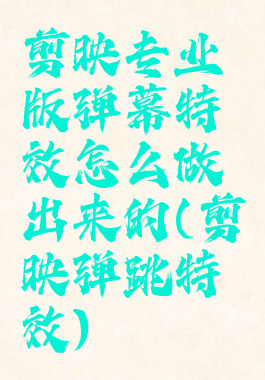 剪映专业
版弹幕特
效怎么做
出来的(剪
映弹跳特
效)